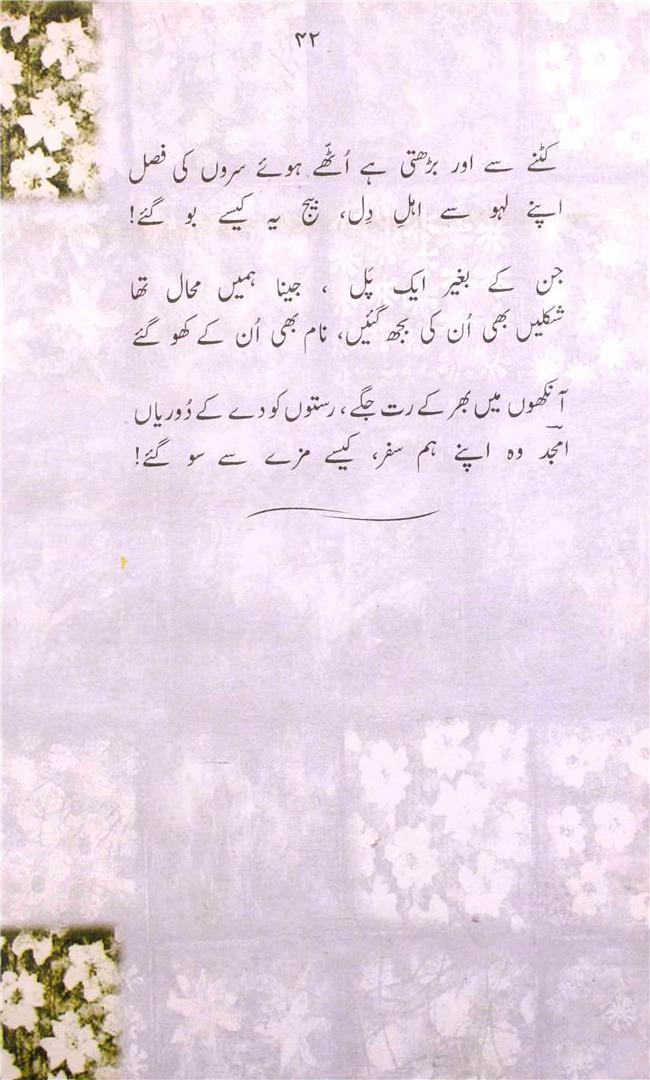 ۴۲
کٹنے سے اور بڑھتی ہے اُٹھّے ہوئے سروں کی فصل
اپنے لہو سے اہلِ دِل، بیج یہ کیسے بو گئے!
جن کے بغیر ایک پَل ، جینا ہمیں محال تھا
شکلیں بھی اُن کی بجھ گئیں، نام بھی اُن کے کھو گئے
آنکھوں میں بھر کے رت جگے، رستوں کو دے کے دُوریاں
امجؔد وہ اپنے ہم سفر، کیسے مزے سے سو گئے!